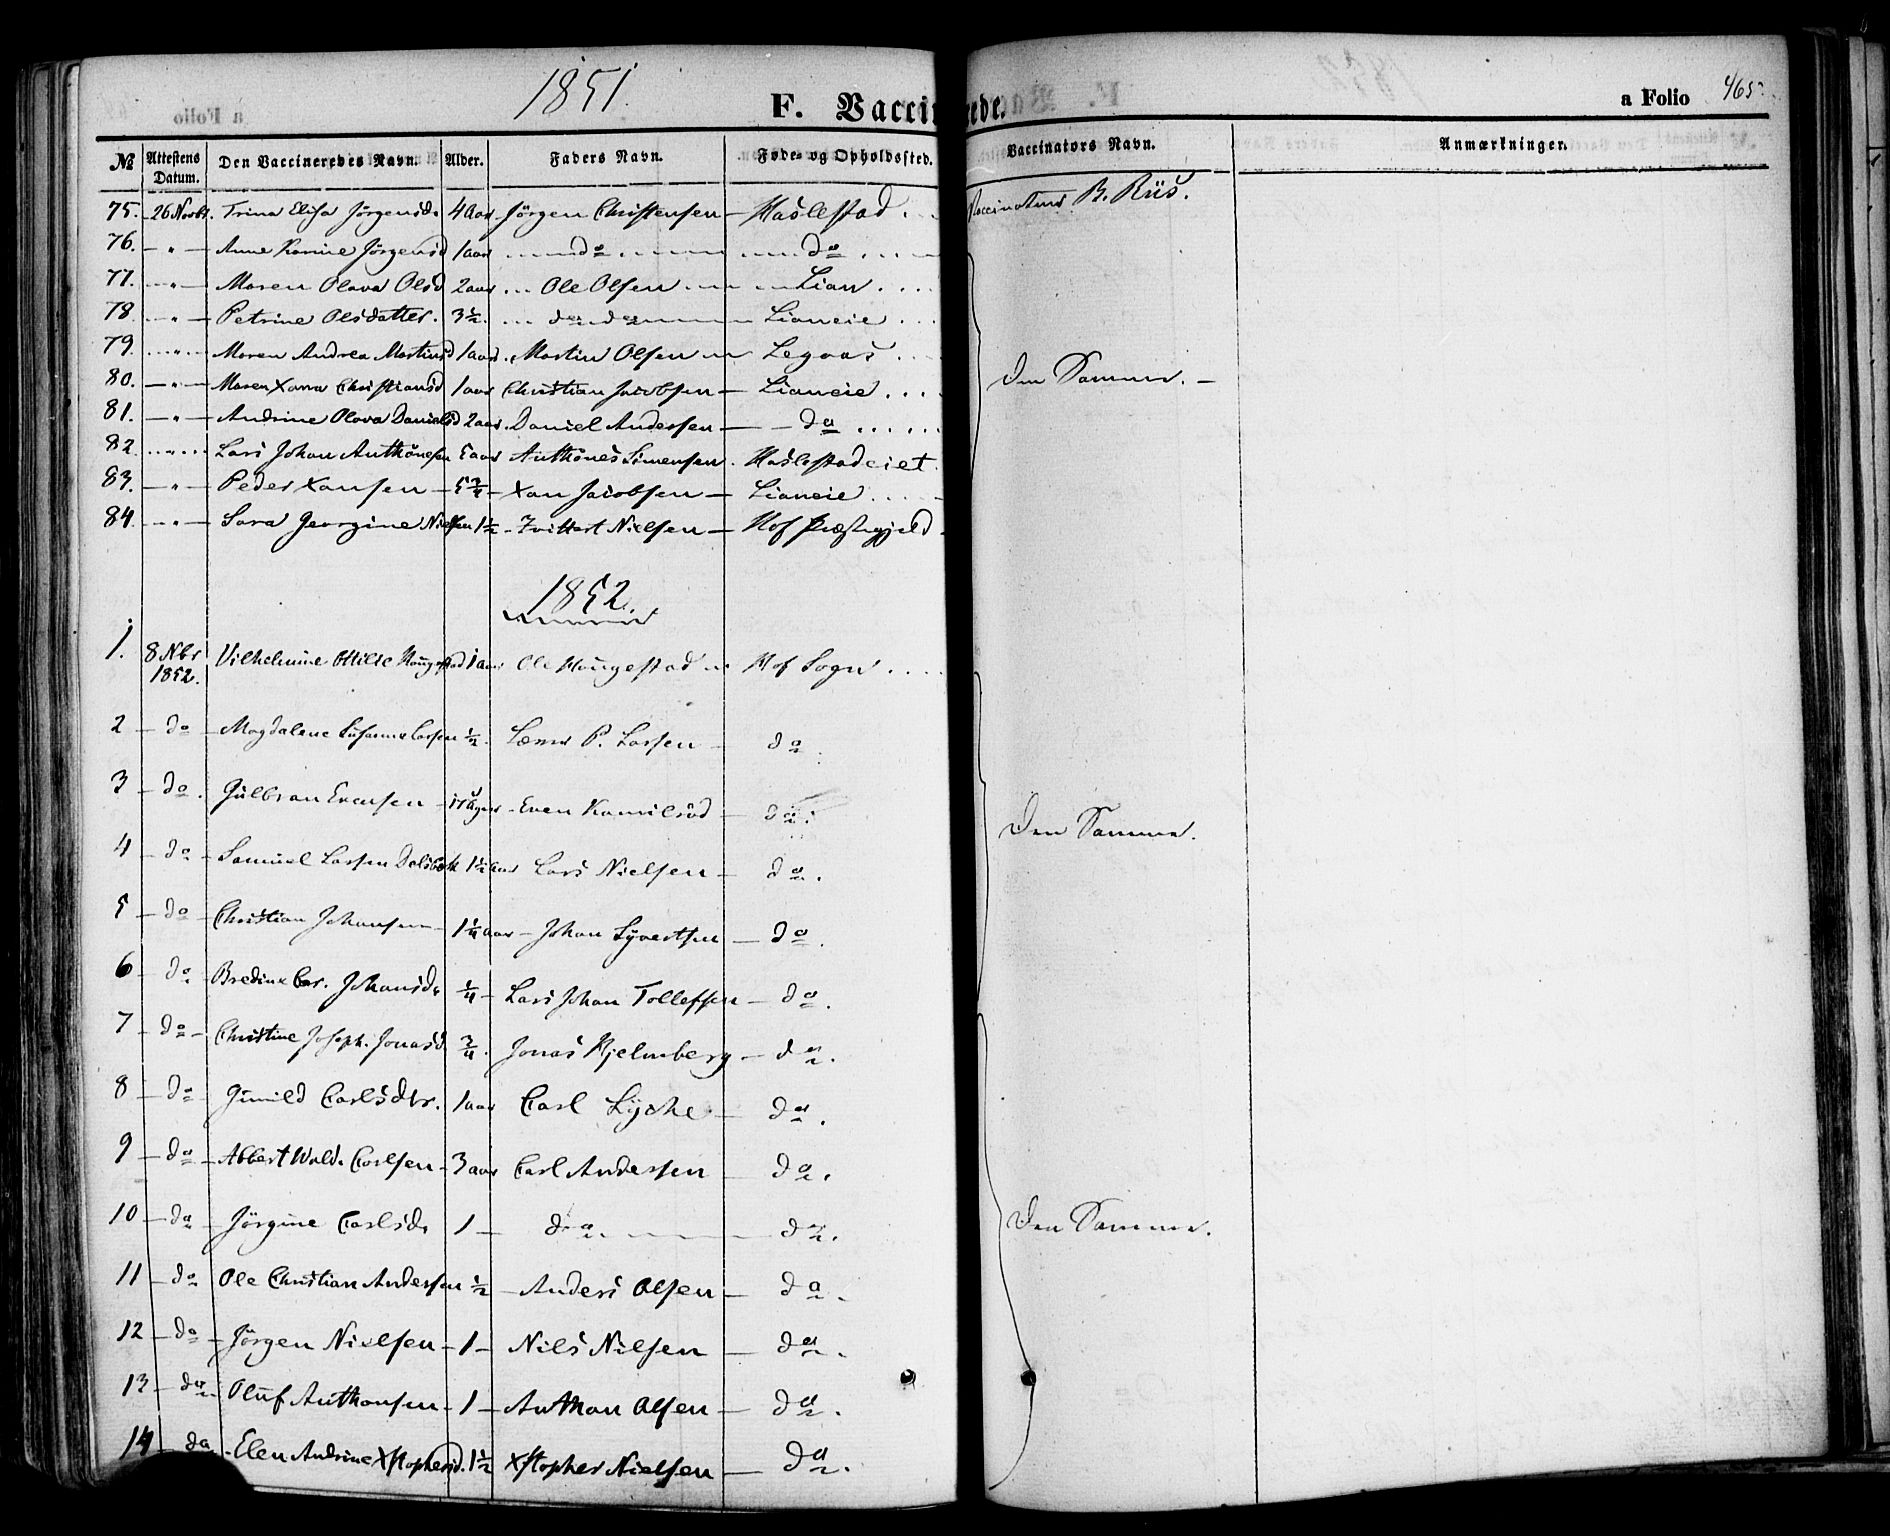 1851.
F. Vaccinerede.
a Folio 465
№ Attestens Datum. Den Vaccineredes Navn. Alder. Faders Navn. Føde- og Opholdssted. Vaccinators Navn. Anmærkninger.
75. 26 Novbr. Trina Elisa Jörgensd. 4 Aar Jörgen Christensen - Haslestad. Vaccinateur B. Riis.
76. - " - Anne Karine Jörgensd 1 aar do do
77. - " - Maren Olava Olsd 2 aar Ole Olsen Lian
78 - " - Petrine Olsdatter. 3 1/2. do do Lianeie
79. - " - Maren Andrea Martinsd 1 aar. Martin Olsen Legaas
80. - " - Maren Xana Christiansd 1 aar Christian Jacobsen - Lianeie Den Samme. -
81. - " - Andrine Olava Danielsd 2 aar. Daniel Andersen - do
82. - " - Lars Johan Anthönesen 5 aar Anthönes Simensen. Haslestadeiet.
83. - " - Peder Xansen - 5 3/4 - Xan Jacobsen - Lianeie
84. - " - Sara Georgine Nielsen 1 1/2 - Nielsen - Hof Præstegjeld.
1852.
1. 8 Nbr 1852. Vilhelmine Ottilie Hougestad 1 aar Ole Hougestad Hof Sogn
2 - do - Magdalene Susanne Larsen 1/2. P. Larsen - do.
3 - do. Gulbran Evensen - Even Kamilröd - do.
4 - do - Samuel Larsen 1 1/2 aar Lars Nielsen - do. Den Samme.
5 - do - Christian Johansen - 1 1/4 aar - Johan Syvertsen - do.
6 - do - Bredine Car. Johansd. 1/4 - Lars Johan Tollefsen - do.
7 - do - Christine Joseph. Jonasd. 3/4. Jonas Hjelmberg - do.
8 - do - Gunild Carlsdtr. 1 aar Carl Lyche - do.
9 - do - Albert Wald. Carlsen - 3 aar Carl Andersen do.
10 - do - Jörgine Carlsd. 1 - do do. Den Samme.
11 - do Ole Christian Andersen 1/2 - Anders Olsen - do.
12 - do - Jörgen Nielsen - 1 - Nils Nilsen - do.
13 - do. Oluf Anthonsen - 1 - Anthon Olsen - do.
14 - do - Elen Andrine Xstophersd. 1 1/2 Xstopher Nielsen - do.